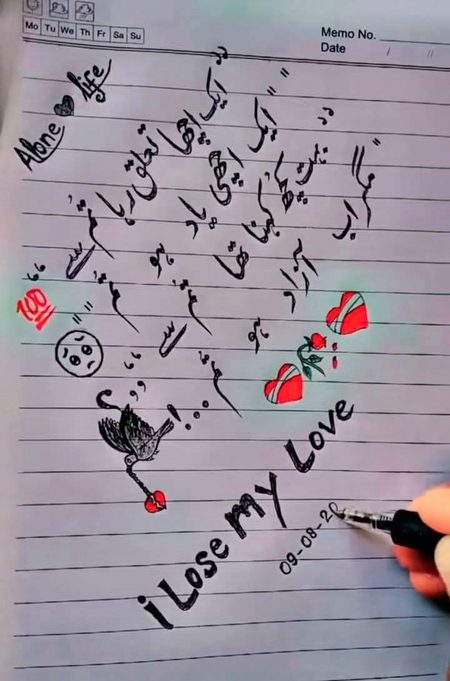 Mo Tu We Th Fr Sa Su
Memo No.
Date / /
Alone life
"ایک اچھا تعلق رہا تم سے"
"ایک اچھی یاد ہو تم"
"بہت کچھ کہنا تھا تم سے"
"مگر اب آزاد ہو تم...!"
100
i Lose my Love
09-08-20